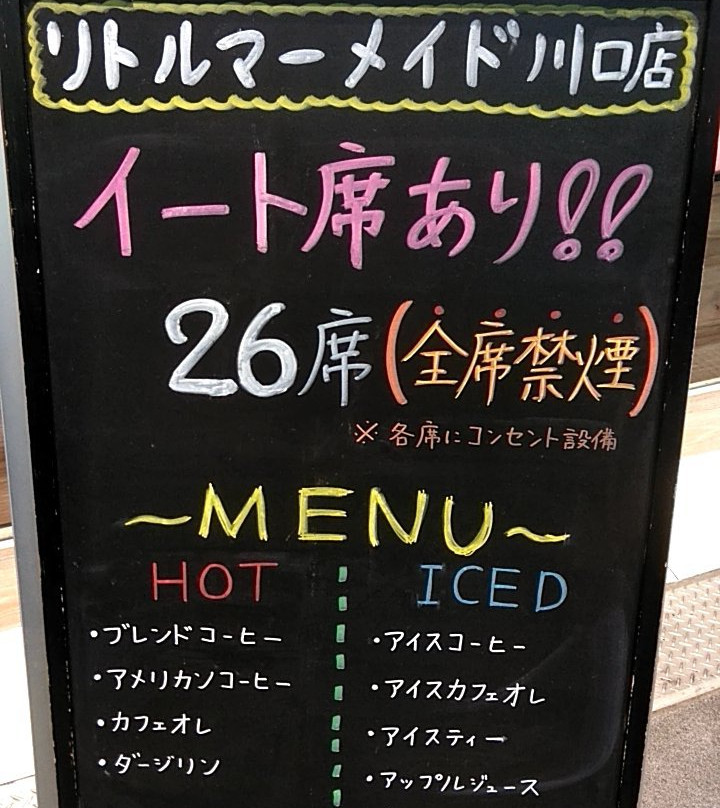 リトルマーメイド川口店
イート席あり!!
26席(全席禁煙)
※各席にコンセント設備
~MENU~
HOT
・ブレンドコーヒー
・アメリカンコーヒー
・カフェオレ
・ダージリン
ICED
・アイスコーヒー
・アイスカフェオレ
・アイスティー
・アップルジュース